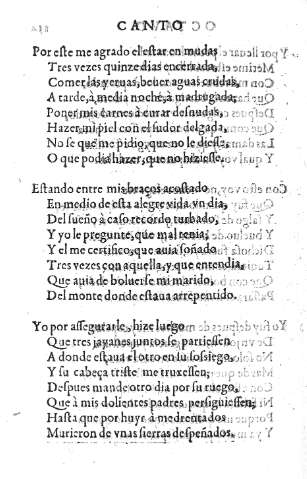 CANTO
Por este me agrado el estar en mudas
Tres vezes quinze dias encerrada,
Comer las yeruas, beuer aguas crudas,
A tarde, à media noche, à madrugada;
Poner mis carnes à curar desnudas,
Hazer mi piel con el sudor delgada,
No se que me pidio, que no le diesse,
O que podia hazer, que no hiziesse.
Estando entre mis braços acostado
En medio de esta alegre vida vn dia,
Del sueño à caso recordo turbado,
Y yo le pregunte, que mal tenia;
Y el me certifico, que auia soñado
Tres vezes con aquella, y que entendia,
Que auia de boluerse mi marido,
Del monte donde estaua arrepentido.
Yo por assegurarle, hize luego
Que tres jayanes juntos se partiessen
A donde estaua el otro en su sossiego,
Y su cabeça triste me truxessen;
Despues mande otro dia por su ruego,
Que à mis dolientes padres persiguiessen;
Hasta que por huyr amedrentados
Murieron de vnas sierras despeñados.